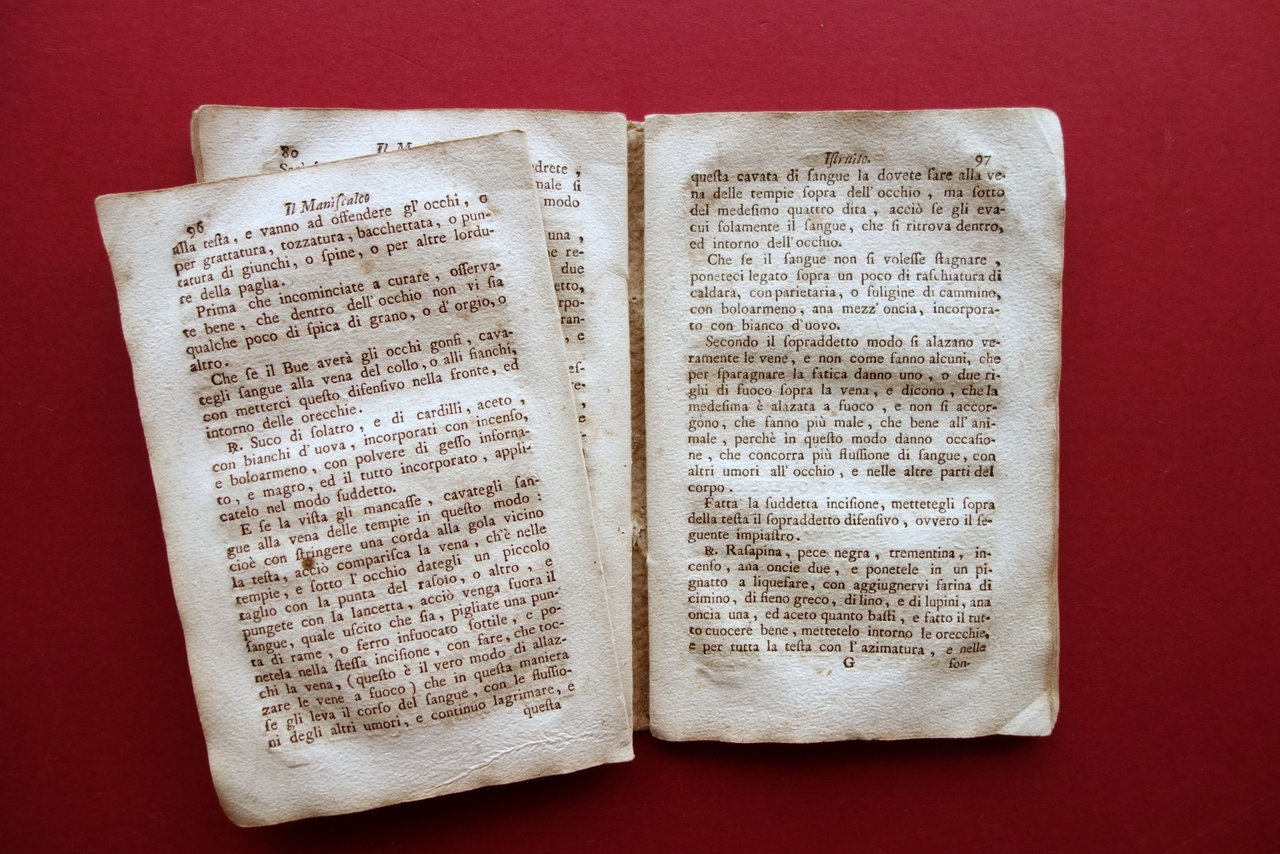 80 Il M
drete ,
male si
modo
una ,
ne re-
due
etto,
rpo-
ran-
, e
es-
re,
en-
96 Il Maniſcalco
alla teſta, e vanno ad offendere gl'occhi, o
per grattatura, tozzatura, bacchettata, o pun-
tatura di giunchi, o ſpine, o per altre lordu-
re della paglia.
Prima che incominciate a curare, oſſerva-
te bene, che dentro dell'occhio non vi ſia
qualche poco di ſpica di grano, o d'orgio, o
altro.
Che ſe il Bue averà gli occhi gonfi, cava-
tegli ſangue alla vena del collo, o alli fianchi,
con metterci queſto difenſivo nella fronte, ed
intorno delle orecchie.
℞. Suco di ſolatro, e di cardilli, aceto,
con bianchi d'uova, incorporati con incenſo,
e boloarmeno, con polvere di geſſo inforna-
to, e magro, ed il tutto incorporato, appli-
catelo nel modo ſuddetto.
E ſe la viſta gli mancaſſe, cavategli ſan-
gue alla vena delle tempie in queſto modo:
cioè con ſtringere una corda alla gola vicino
la teſta, acciò compariſca la vena, ch'è nelle
tempie, e ſotto l'occhio dategli un piccolo
taglio con la punta del raſoio, o altro, e
pungete con la lancetta, acciò venga fuora il
ſangue, quale uſcito che ſia, pigliate una pun-
ta di rame, o ferro infuocato ſottile, e po-
netela nella ſteſſa inciſione, con fare, che toc-
chi la vena, (queſto è il vero modo di allaz-
zare le vene a fuoco) che in queſta maniera
ſe gli leva il corſo del ſangue, con le fluſſio-
ni degli altri umori, e continuo lagrimare, e
queſta
Iſtruito. 97
queſta cavata di ſangue la dovete fare alla ve-
na delle tempie ſopra dell'occhio, ma ſotto
del medeſimo quattro dita, acciò ſe gli eva-
cui ſolamente il ſangue, che ſi ritrova dentro,
ed intorno dell'occhio.
Che ſe il ſangue non ſi voleſſe ſtagnare,
poneteci legato ſopra un poco di raſchiatura di
caldara, con parietaria, o fuligine di cammino,
con boloarmeno, ana mezz'oncia, incorpora-
to con bianco d'uovo.
Secondo il ſopraddetto modo ſi alazano ve-
ramente le vene, e non come fanno alcuni, che
per ſparagnare la fatica danno uno, o due ri-
ghi di fuoco ſopra la vena, e dicono, che la
medeſima è alazata a fuoco, e non ſi accor-
gono, che fanno più male, che bene all'ani-
male, perchè in queſto modo danno occaſio-
ne, che concorra più fluſſione di ſangue, con
altri umori all'occhio, e nelle altre parti del
corpo.
Fatta la ſuddetta inciſione, mettetegli ſopra
della teſta il ſopraddetto difenſivo, ovvero il ſe-
guente impiaſtro.
℞. Raſapina, pece negra, trementina, in-
cenſo, ana oncie due, e ponetele in un pi-
gnatto a liquefare, con aggiugnervi farina di
cimino, di fieno greco, di lino, e di lupini, ana
oncia una, ed aceto quanto baſti, e fatto il tut-
to cuocere bene, mettetelo intorno le orecchie,
e per tutta la teſta con l'azimatura, e nelle
G ſon-